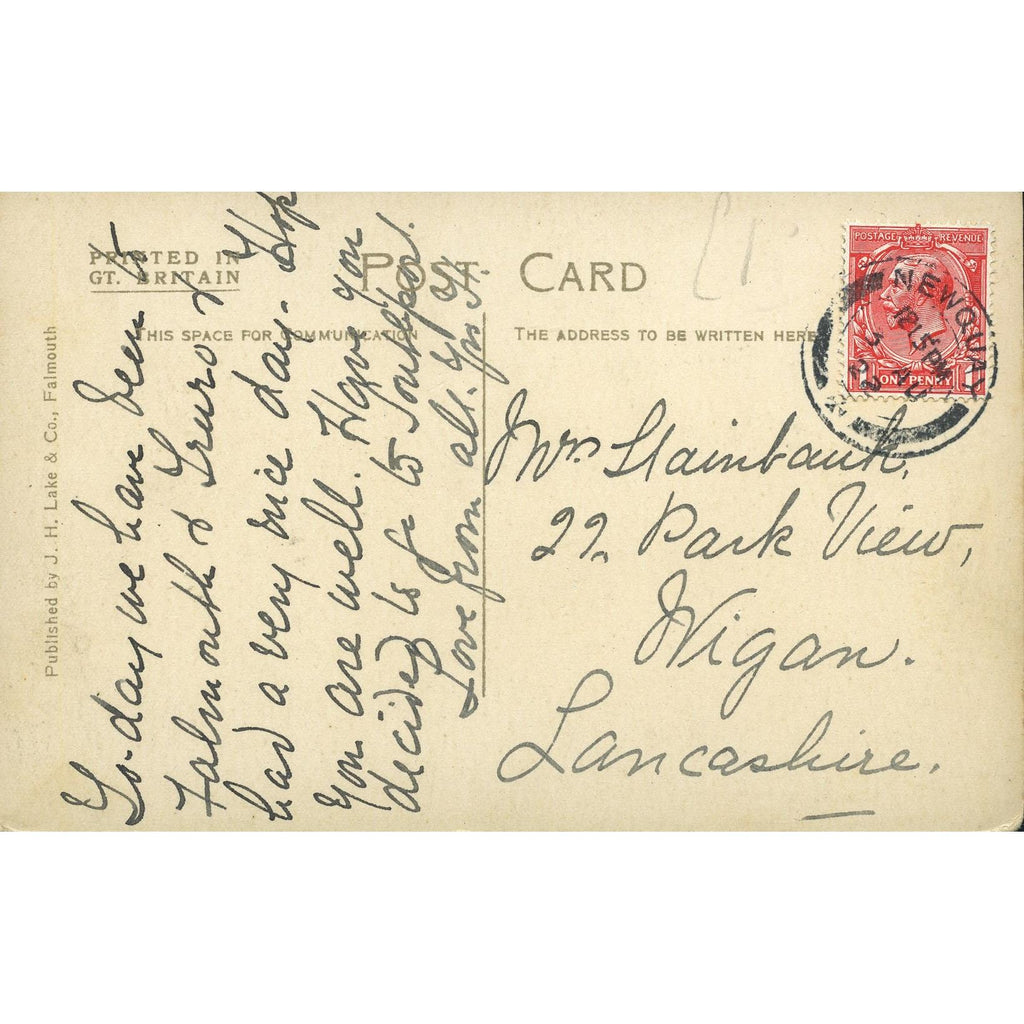 PRINTED IN
GT. BRITAIN
POST CARD
THIS SPACE FOR COMMUNICATION
THE ADDRESS TO BE WRITTEN HERE
Published by J. H. Lake & Co., Falmouth
To-day we have been to
Falmouth & Truro &
had a very nice day. Hop
you are well. Have you
decided to go to Southport.
Love from all.
Mrs Stainbank,
22 Park View,
Wigan.
Lancashire.
POSTAGE REVENUE
ONE PENNY 1
NEWQUAY
12 15 PM
3 AU
22
£1